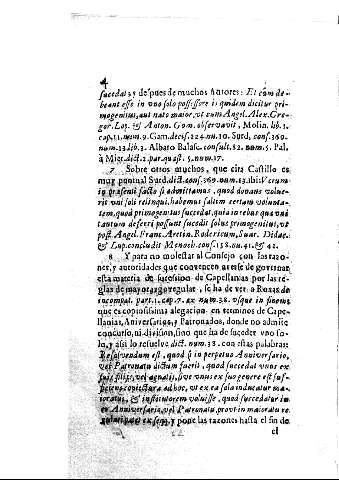 4
sucedat 35 despues de muchos Autores: Et cùm de-
beant esse in vno solo possessore is quidem dicitur pri-
mogenitus, aut nato maior, vt cum Angel. Alex. Gre-
gor. Lop. & Anton. Gom. observavit, Molin. lib. 1.
cap. 11. num. 9. Gam. decis. 224. nu. 10. Surd. cons. 369.
num. 13. lib. 3. Albaro Balasc. consult. 82. num. 5. Pal.
à Mier. dict. 2. par. quæst. 5. num. 17.
7 Sobre otros muchos, que cita Castillo es
muy puntual Surd. dict. cons. 369. num. 13. ibi: Et cum
in præsenti facto si admittamus, quod donans volue-
rit vni soli relinqui, habemus saltim certam volunta-
tem, quod primogenitus succedat, quia in rebus quæ vni
tantum deferri possunt succedit solus primogenitus, vt
post. Angel. Franc. Aretin. Rodericum, Suar. Didac.
& Lup. concludit Menoch. cons. 158. nu. 41. & 42.
8 Y para no molestar al Consejo con las razo-
nes, y autoridades que convencen averse de governar
esta materia de sucession de Capellanias por las re-
glas de mayorazgo regular, se ha de ver à Roxas de
incompat. part. 1. cap. 7. ex num. 38. vsque in finem
que es copiosissima alegacion en terminos de Capel-
lanias, Aniversarios, y Patronados, donde no admite
concurso, ni division, sino que ha de suceder vno so-
lo, y assi lo resuelve dict. num. 38. con estas palabras:
Resolvendum est, quod si in perpetua Anniversario,
vel Patronatu dictum fuerit, quod succedat vnus ex
suis filijs, vel agnatis, sive vnus ex suo genere est suf-
ficiens coniectura ad hoc, vt ex ea sola inducatur ma-
ioratus, & institutorem voluisse, quod succedatur in
eo Anniversario, vel Patronatu, prout in maioratu re-
gulari per exsem, y pone las razones hasta el fin de
el